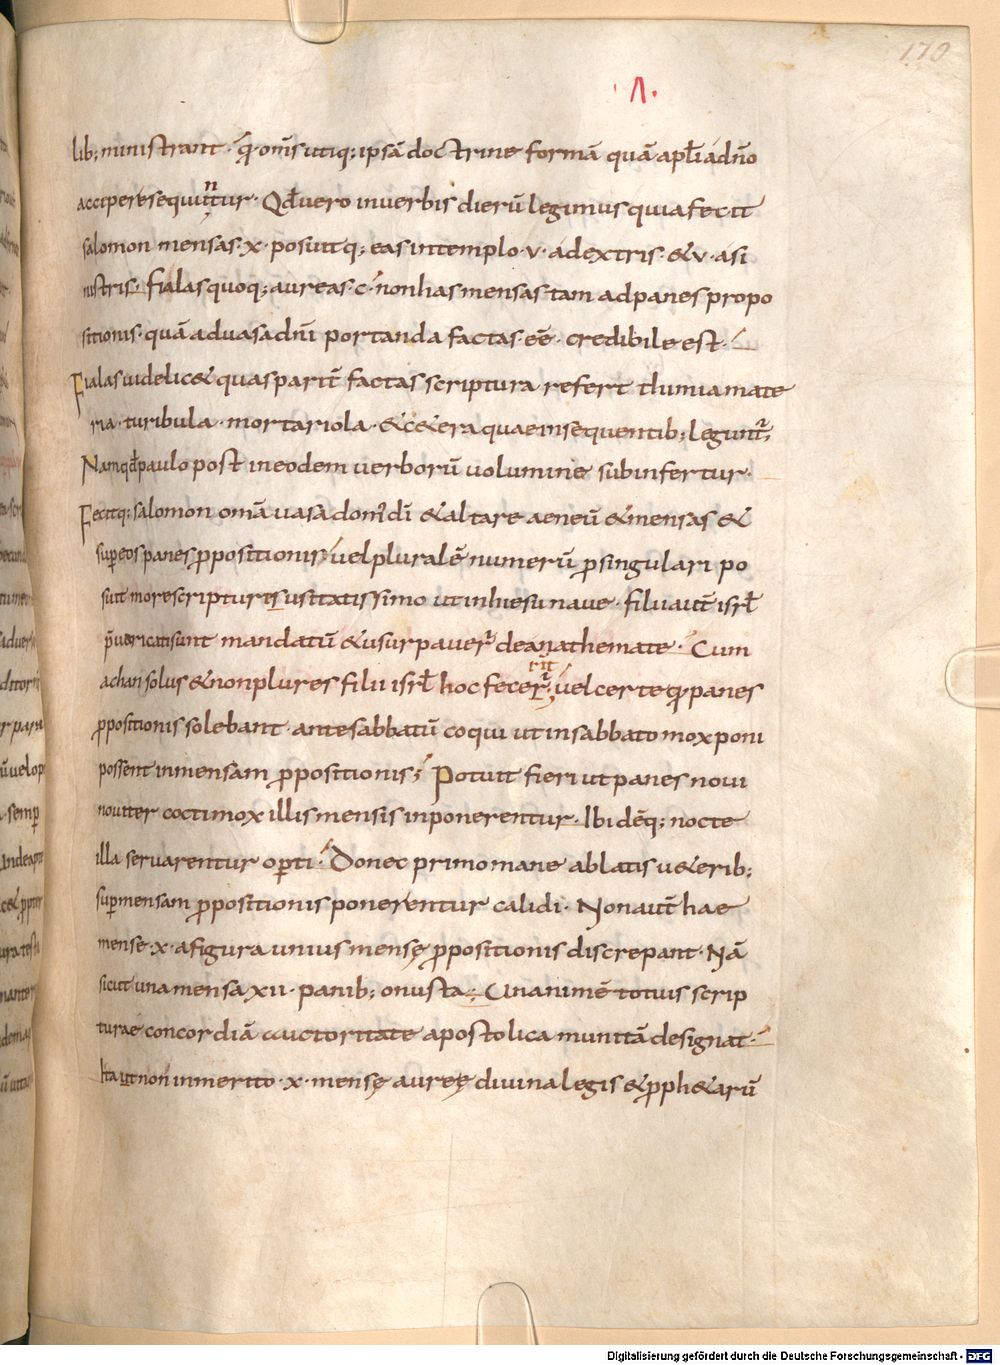 170
·Λ·
lib; ministrant· q̄ om̄s utiq; ipsā doctrine formā quā apl̄i adn̄o
accipere sequntur· Qd̄ vero in verbis dierū legimus quia fecit
salomon mensas·x· posuitq; eas in templo·v· adextris·&v· asi
nistris· fialas quoq; aureas·c· non has mensas tam ad panes propo
sitionis· quā ad vasa dn̄i portanda factas· eē· credibile est·
Fialas videlic& quas parit̄ factas scriptura refert
ria· turibula· mortariola· &c&era quae in sequentib; legunt̄;
Nam qd̄ paulo post in eodem verborū volumine subinfertur·
Fecitq; salomon om̄a vasa dom' dī &altare aeneū &mensas &
sup eos panes ppositionis; vel pluralē numerū p singulari po
suit more scripturis usitatissimo ut in hiesu nave· filii aut̄ isrl̄
p̄varicati sunt mandatū &usurpaver̄ de anathemate· Cum
rit
achan solus &non plures filii isrl̄ hoc fecer̄; vel certe q panes
ppositionis solebant ante sabbatū coqui ut in sabbato mox poni
possent in mensam ppositionis; Potuit fieri ut panes novi
noviter cocti mox illis mensis inponerentur· Ibidēq; nocte
illa servarentur opti· Donec primo mane ablatis v&erib;
sup mensam ppositionis ponerentur calidi· Non aut̄ hae
mense·x· a figura unius mensę ppositionis discrepant· Nā
sicut una mensa xii· panib; onusta; Unanimē totius scrip
turae concordiā auctoritate apostolica munitā designat·
Ita ut non inmerito·x· mensę aureę divina legis &pph&arū
Digitalisierung gefördert durch die Deutsche Forschungsgemeinschaft - DFG